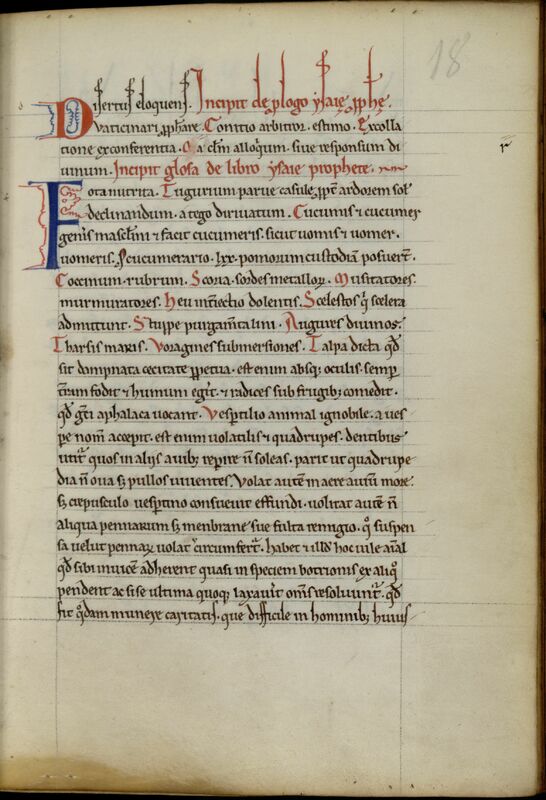 18
Disertus eloquens. Incipit de plogo ysaie pphe.
Vaticinari pphare. Contio arbitror. estimo. Excolla
tione exconferentia. alloquium. siue responsum di
uinum. Incipit glosa de libro ysaie prophete.
Fota nutrita. Tugurium parue casule ppt ardorem sol
declinandum. atego diriuatum. Cucumis & cucumer
generis masclini & facit cucumeris. sicut uomis & uomer.
uomeris. P cucumerario. lxx. pomorum custodiam posuert.
Coccinum. rubrum. Scoria. sordes metallor. Musitatores.
murmuratores. Heu dolentis. Scelestos qi scelera
admittunt. Stuppe purgamta lini. Augures diuinos.
Tharsis maxis. Voragines submersiones. Talpa dicta qd
sit dampnata cecitate ppetua. est enim absq; oculis. semp
tram fodit & humum egit. & radices sub frugib; comedit.
qd greci aphalaca uocant. Vespertilio animal ignobile. a ues
pe nom accepit. est enim uolatilis & quadrupes. dentibus
utit quos in aliis auib; repire n soleas. parit ut quadrupe
dia n oua s; pullos uiuentes. Volat autem in aere autum more.
s; crepusculo uesptino consueuit effundi. uolitat autem n
aliqua pennarum s; menbrane sue fulta remigio. qo suspen
sa uelut pennaz uolat circumfert. habet & illud hoc uile aial
qd sibi inuicem adherent quasi in speciem botrionis ex aliqo
pendent ac si se ultima quoq; laxauit oms resoluunt. qd
fit qodam munere caritatis. que difficile in hominib; huius